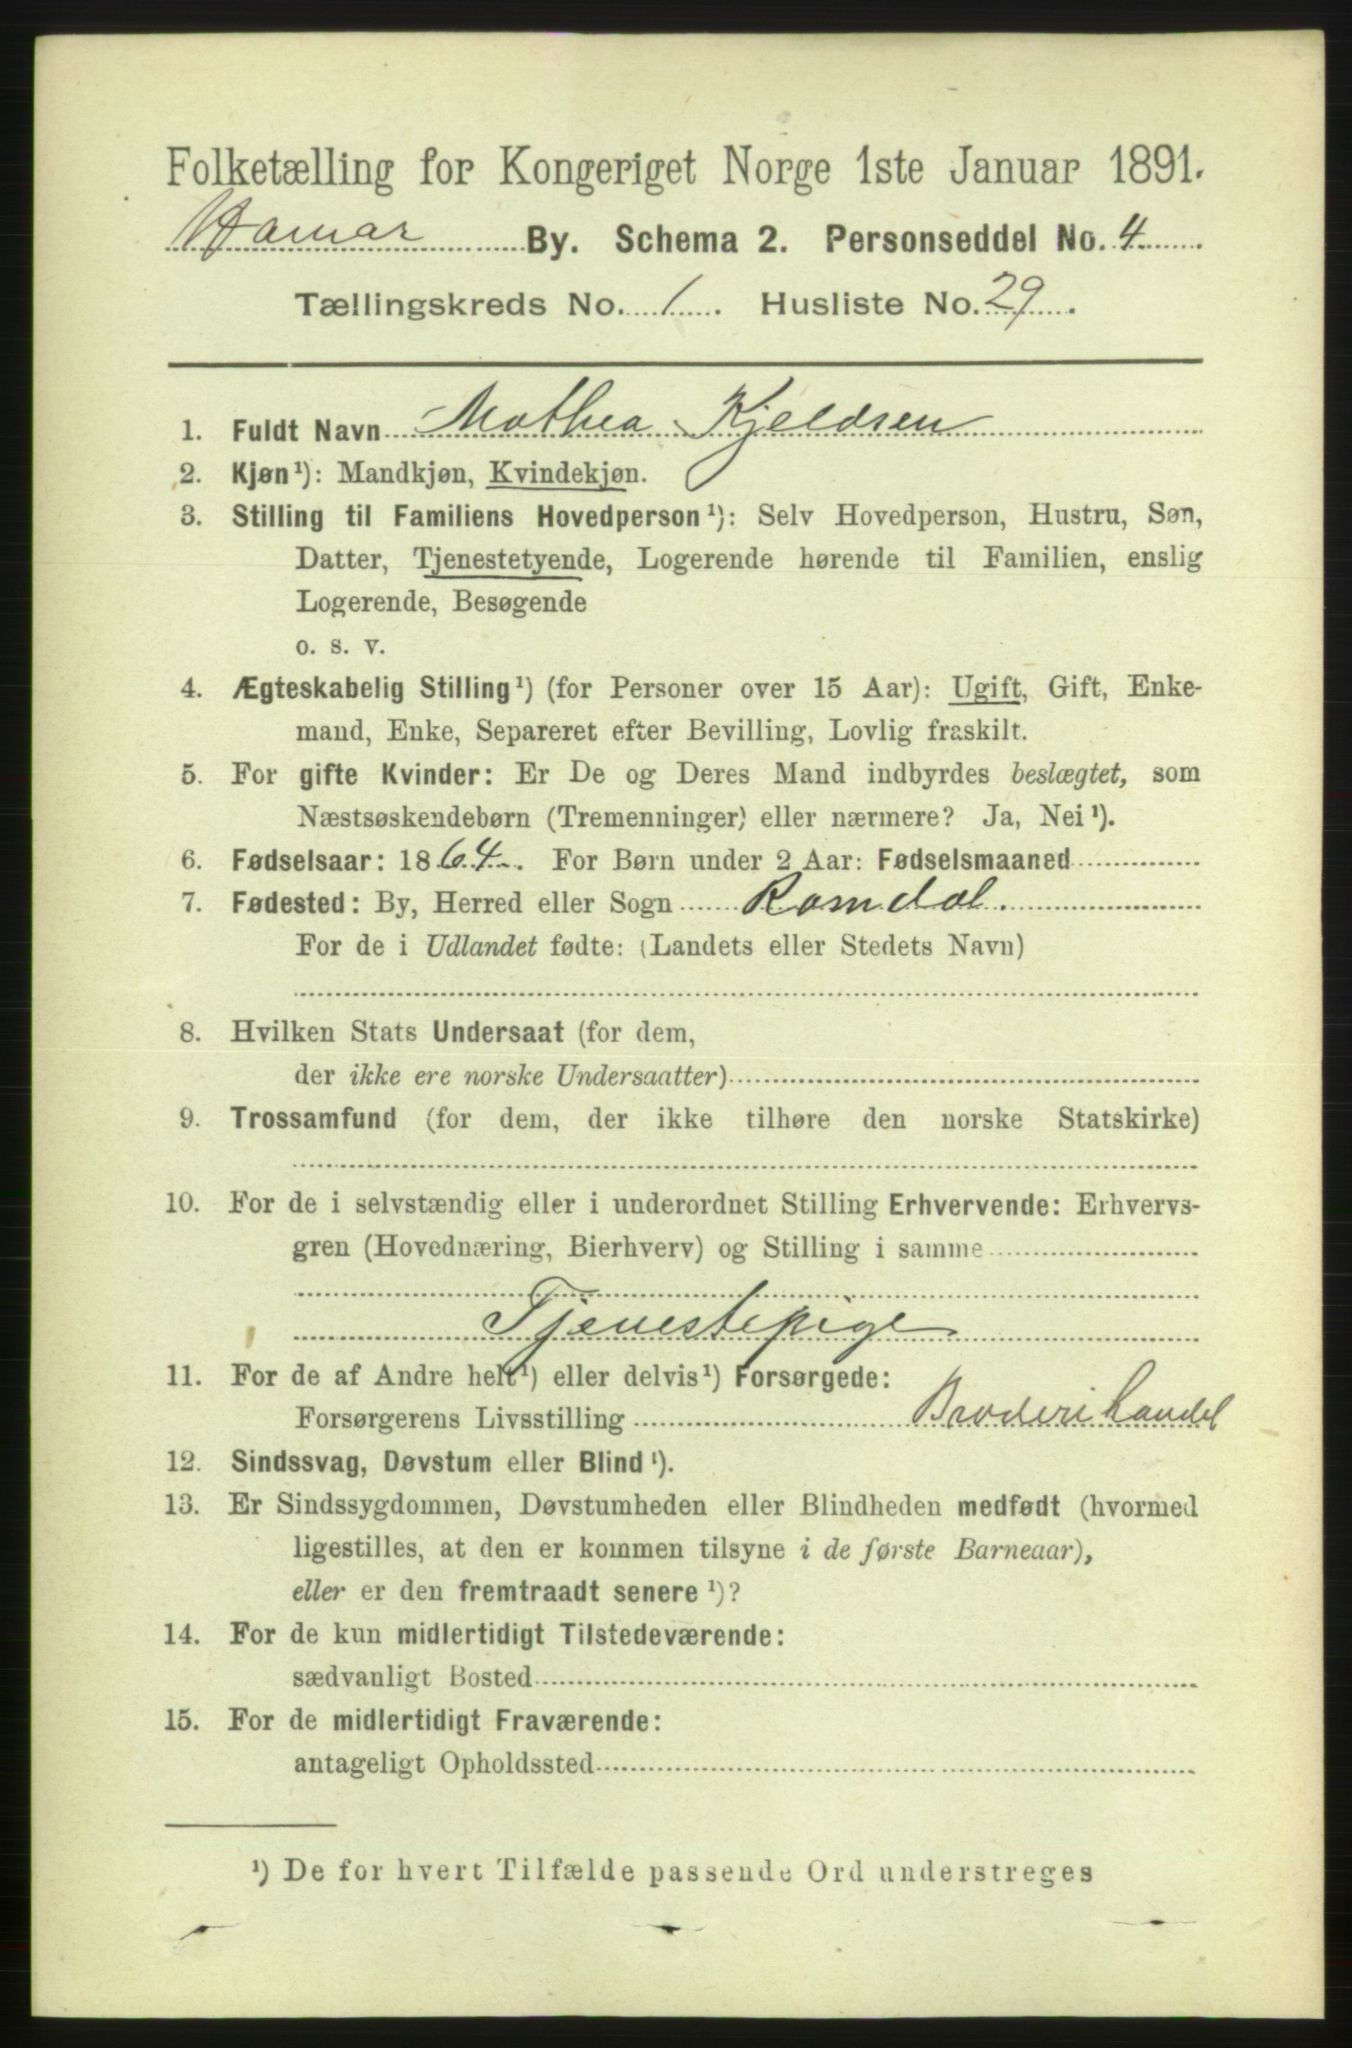 Folketælling for Kongeriget Norge 1ste Januar 1891.
Hamar By. Schema 2. Personseddel No. 4.
Tællingskreds No. 1. Husliste No. 29.
1. Fuldt Navn Mathea Kjeldsen
2. Kjøn¹): Mandkjøn, Kvindekjøn.
3. Stilling til Familiens Hovedperson¹): Selv Hovedperson, Hustru, Søn,
Datter, Tjenestetyende, Logerende hørende til Familien, enslig
Logerende, Besøgende
o. s. v.
4. Ægteskabelig Stilling¹) (for Personer over 15 Aar): Ugift, Gift, Enke-
mand, Enke, Separeret efter Bevilling, Lovlig fraskilt.
5. For gifte Kvinder: Er De og Deres Mand indbyrdes beslægtet, som
Næstsøskendebørn (Tremenninger) eller nærmere? Ja, Nei¹).
6. Fødselsaar: 1864. For Børn under 2 Aar: Fødselsmaaned
7. Fødested: By, Herred eller Sogn Romdal.
For de i Udlandet fødte: (Landets eller Stedets Navn)
8. Hvilken Stats Undersaat (for dem,
der ikke ere norske Undersaatter)
9. Trossamfund (for dem, der ikke tilhøre den norske Statskirke)
10. For de i selvstændig eller i underordnet Stilling Erhvervende: Erhvervs-
gren (Hovednæring, Bierhverv) og Stilling i samme
Tjenestepige
11. For de af Andre helt¹) eller delvis¹) Forsørgede:
Forsørgerens Livsstilling Broderihandel
12. Sindssvag, Døvstum eller Blind¹).
13. Er Sindssygdommen, Døvstumheden eller Blindheden medfødt (hvormed
ligestilles, at den er kommen tilsyne i de første Barneaar),
eller er den fremtraadt senere¹)?
14. For de kun midlertidigt Tilstedeværende:
sædvanligt Bosted
15. For de midlertidigt Fraværende:
antageligt Opholdssted
¹) De for hvert Tilfælde passende Ord understreges